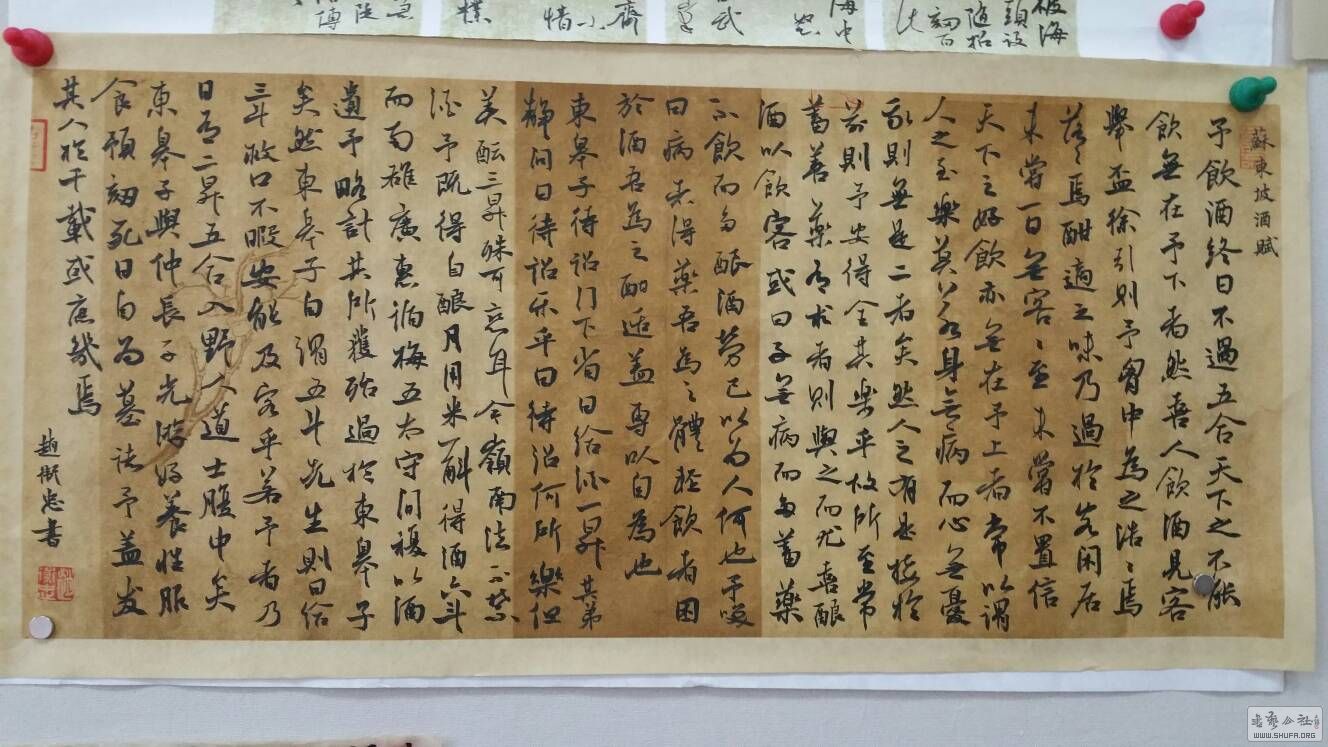 蘇東坡酒賦
予飲酒終日不過五合天下之不能
飲無在予下者然喜人飲酒見客
舉盃徐引則予胸中為之浩〻焉
落〻焉酣適之味乃過於客闲居
未嘗一日無客〻至未嘗不置信
天下之好飲亦無在予上者常以謂
人之至樂莫若身無病而心無憂
我則無是二者矣然人之有是接於
前則予安得全其樂乎故所至常
蓄善藥有求者則與之而尤喜釀
酒以飲客或曰子無病而多蓄藥
不飲而多釀酒勞己以为人何也予笑
曰病者得藥吾為之體輕飲者困
於酒吾為之酣適蓋專以自為也
東皋子待詔门下省日给酒一昇其弟
静问曰待詔乐乎曰待詔何所樂但
美醖三昇殊可恋耳今嶺南法不禁
酒予既得自釀月用米一斛得酒六斗
而南雄廣惠循梅五太守间複以酒
遺予略計其所獲殆過於東皋子
矣然東皋子自謂五斗先生則日给
三斗救口不暇安能及客乎若予者乃
日有二昇五合入野人道士腹中矣
東皋子與仲長子光游好養性服
食預刻死日自为墓誌予蓋友
其人於千載或庶幾焉
趙 忠書
書藝公社
WWW.SHUFA.ORG